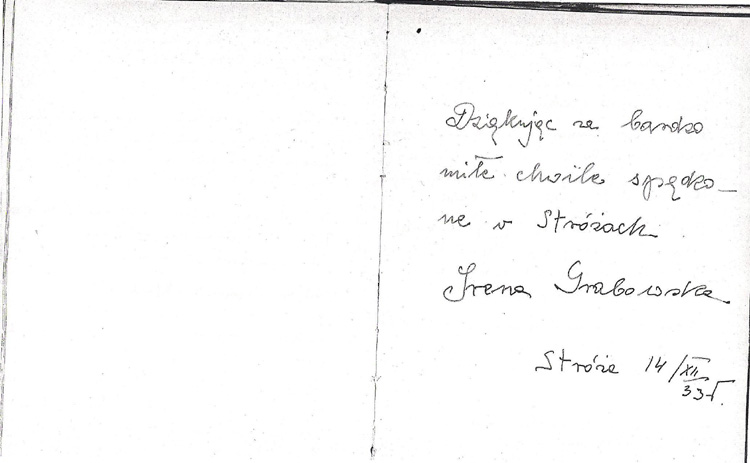 Dziękując za bardzo
miłe chwile spędzo-
ne w Stróżach
Irena Grabowska
Stróże 14/XII
33 r.